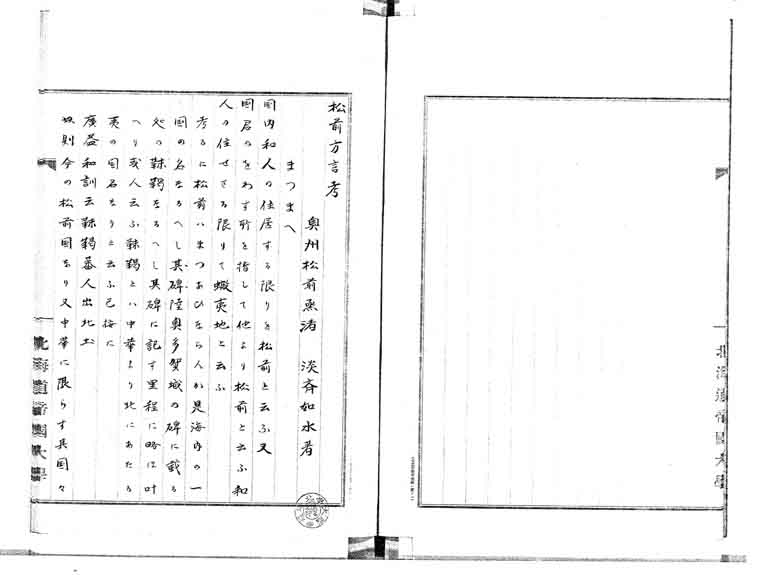 松前方言考
奥州松前 淡斉如水著
まつまへ
国内和人の住居する限りを松前と云ふ又
国君のをわす所を指して他より松前と云ふ和
人の住せさる限りて蝦夷地と云ふ
考るに松前ハまつまひならん人か是海内の一
国の名なるへし其碑陸奥多賀城の碑に載る
処の靺鞨なるへし其碑に記す里程に略は叶
へり或人云ふ靺鞨とハ中華より北にあたる
夷の国名なりと云ふ已按に
廣益和訓云靺鞨蕃人出北土
然則今の松前国なり又中華に限らす其国々
北海道帝国大学
北海道帝国大学